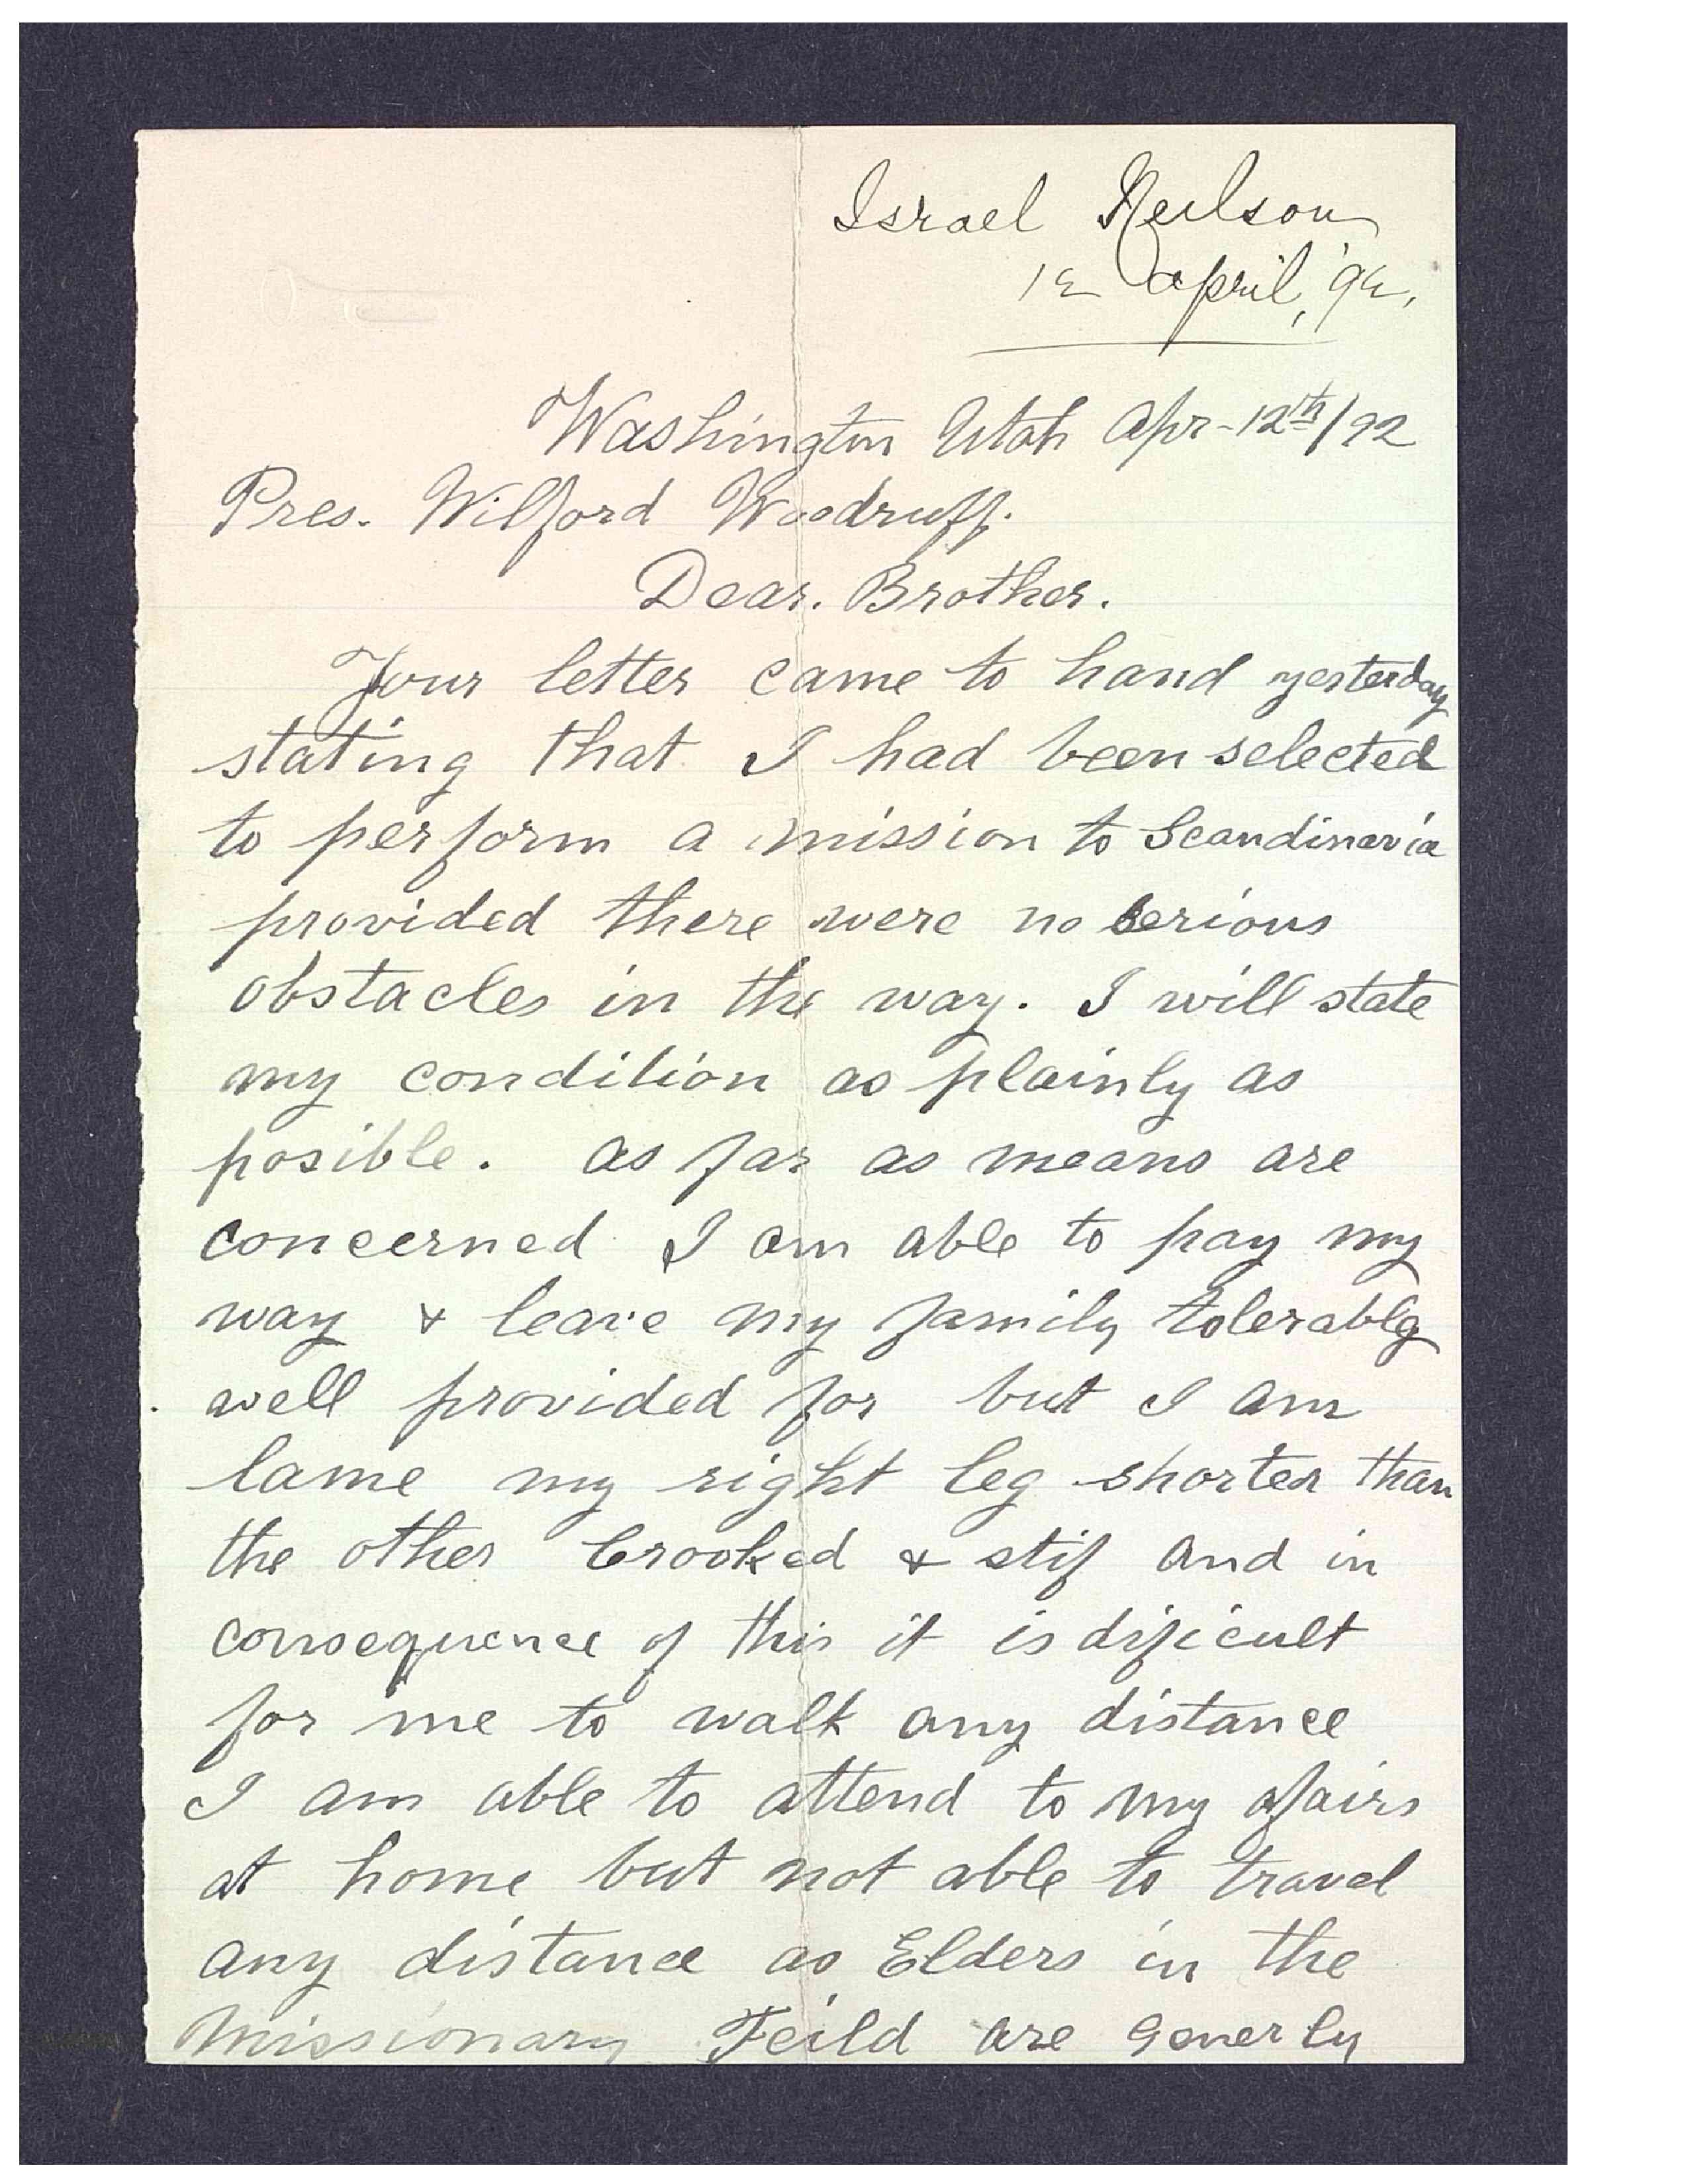 Israel Neilson
12 April, '92.
Washington Utah Apr-12th/92
Pres. Wilford Woodruff.
Dear. Brother.
Your letter came to hand yesterday
stating that I had been selected
to perform a mission to Scandinavia
provided there were no serious
obstacles in the way. I will state
my condition as plainly as
posible. as far as means are
concerned I am able to pay my
way & leave my family tolerably
well provided for but I am
lame my right leg shorter than
the other Crooked & stif and in
consequence of this it is dificult
for me to walk any distance
I am able to attend to my afairs
at home but not able to travel
any distance as Elders in the
Missionary Feild are generly